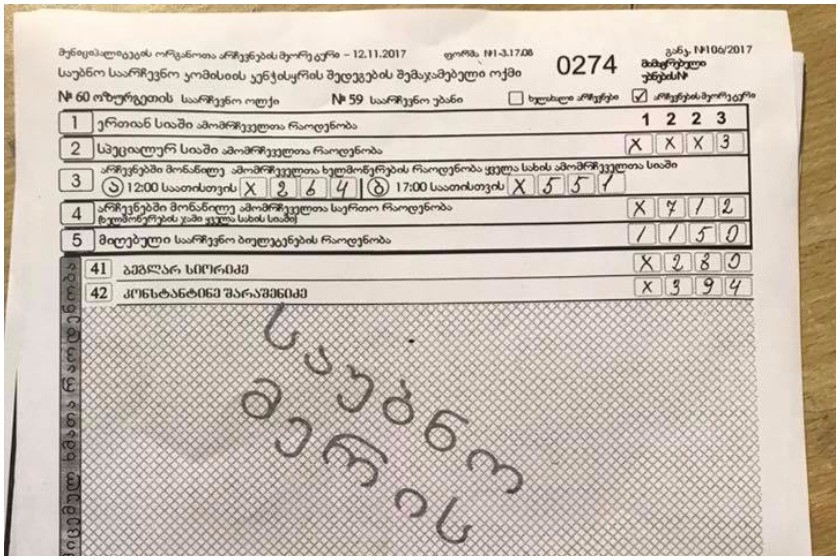 მუნიციპალიტეტის ორგანოთა არჩევნების მეორე ტური – 12.11.2017 ფორმა №1-3.17.08 განკ. №106/2017
საუბნო საარჩევნო კომისიის კენჭისყრის შედეგების შემაჯამებელი ოქმი 0274 მიმაგრებული უბნების№
№ 60 ოზურგეთის საარჩევნო ოლქი № 59 საარჩევნო უბანი ხელახალი არჩევნები ✓ არჩევნების მეორე ტური
1 ერთიან სიაში ამომრჩეველთა რაოდენობა 1 2 2 3
2 სპეციალურ სიაში ამომრჩეველთა რაოდენობა X X X 3
3 არჩევნებში მონაწილე ამომრჩეველთა ხელმოწერების რაოდენობა ყველა სახის ამომრჩეველთა სიაში
ა 12:00 საათისთვის X 2 6 4 ბ 17:00 საათისთვის X 5 5 1
4 არჩევნებში მონაწილე ამომრჩეველთა საერთო რაოდენობა X 7 1 2
(ხელმოწერების ჯამი ყველა სახის სიაში)
5 მიღებული საარჩევნო ბიულეტენების რაოდენობა 1 1 5 0
41 ბეგლარ სიორიძე X 2 8 0
42 კონსტანტინე შარაშენიძე X 3 9 4
მიცემულ ხმათა რაოდენობა
საუბნო
მერის